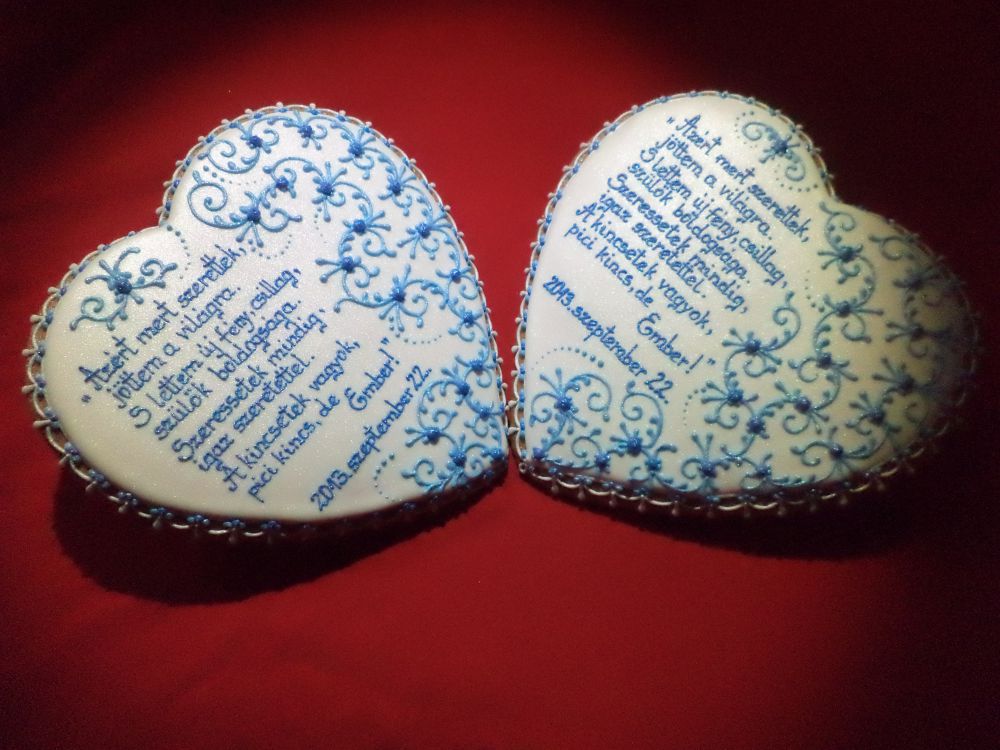 "Azért mert szerettek,
jöttem a világra.
S lettem új fény, csillag,
szülők boldogsága.
Szeressetek mindig,
igaz szeretettel.
A kincsetek vagyok,
pici kincs, de
Ember!"
2013. szeptember 22.
"Azért mert szerettek,
jöttem a világra.
S lettem új fény, csillag,
szülők boldogsága.
Szeressetek mindig,
igaz szeretettel.
A kincsetek vagyok,
pici kincs, de
Ember!"
2013. szeptember 22.